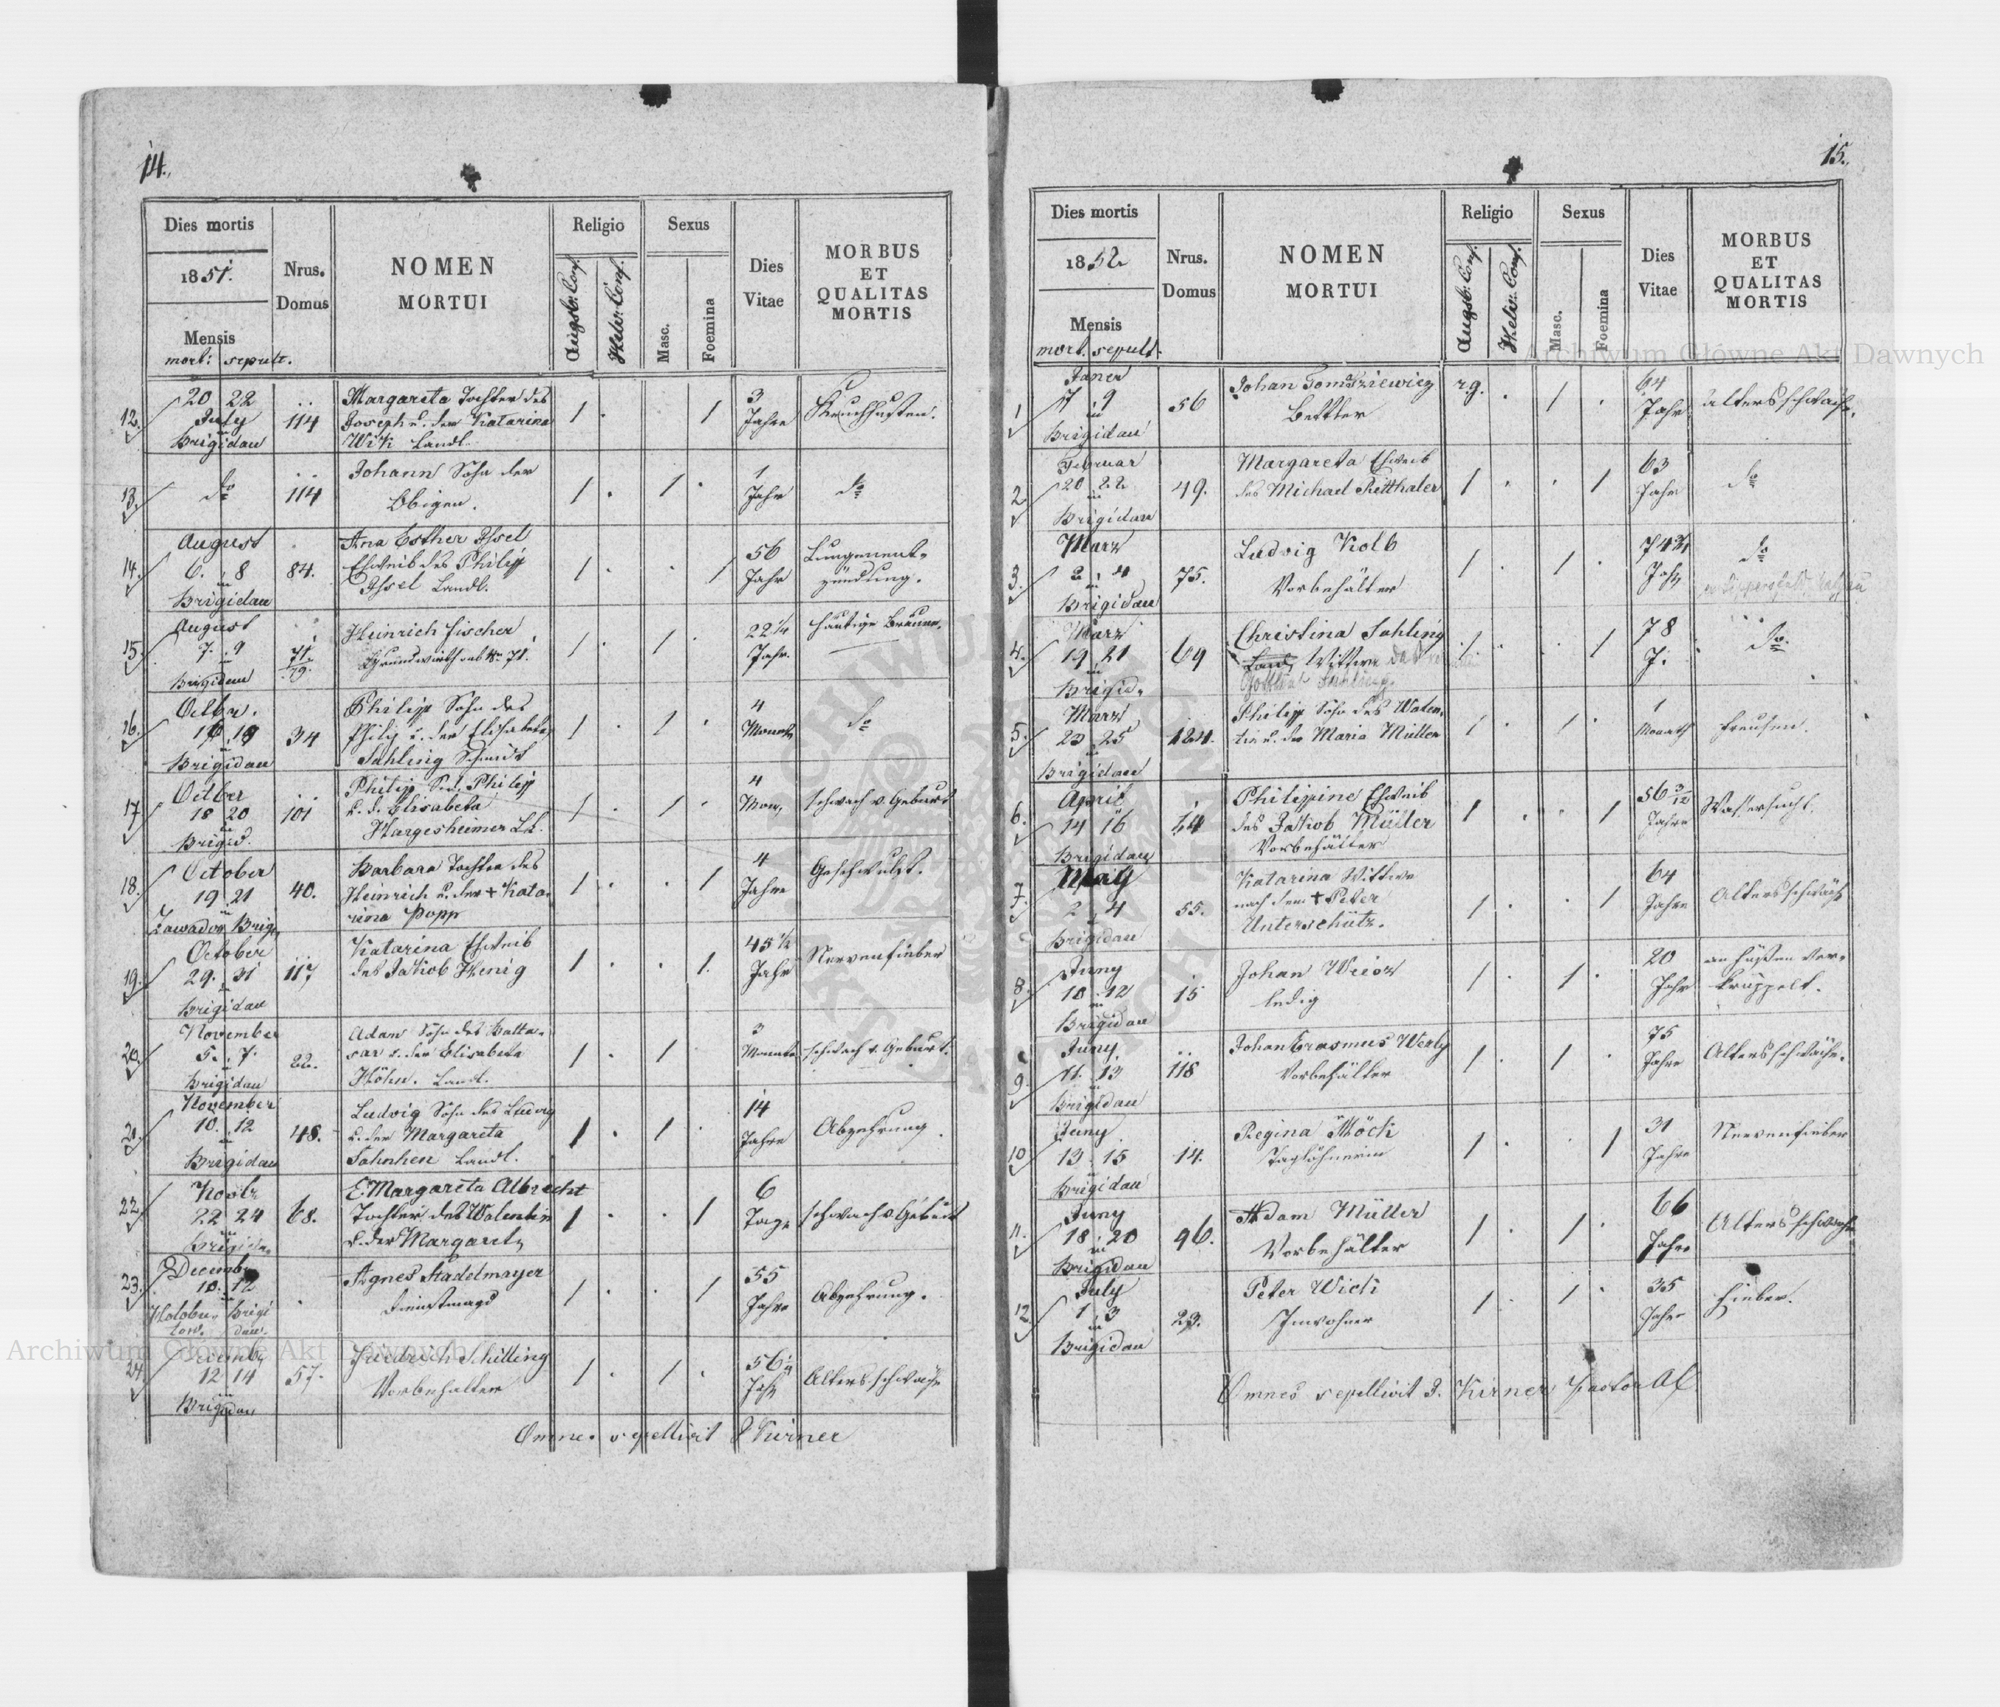 14.
Dies mortis
1851.
Mensis
mort: sepult.
Nrus.
Domus
NOMEN
MORTUI
Religio
Augsb. Conf.
Helv. Conf.
Sexus
Masc.
Foemina
Dies
Vitae
MORBUS
ET
QUALITAS
MORTIS
12.
20 22
July
in
Brigidau
114
Margareta Tochter des
Joseph u. der Katarina
Wik Landl.
1 . . 1
3
Jahre
Keuchhusten.
13.
do
114
Johann Sohn der
Obigen.
1 . 1 .
1
Jahr
do
14.
August
6. 8
in
Brigidau
84.
Ana Esther Issel
Eheweib des Philipp
Issel Landl.
1 . . 1
56
Jahr
Lungenent-
zündung.
15.
August
7. 9
in
Brigidau
71.
79.
Heinrich Fischer
Grundwirth sub Nr. 71.
1 . 1 .
22 1/4
Jahr.
häutige Bräune.
16.
Octbr.
in
Brigidau
34
Philipp Sohn des
Philip u. der Elisabeta
Sahling Schmidt
1 . 1 .
4
Monath
do
17.
Octber
18 20
in
Brigid.
101
Philip S. d. Philipp
u. d. Elisabeta
Hargesheimer Ll.
1 . 1 .
4
Mon.
schwach v. Geburt
18.
October
19 21
in
Zawadow Brigi.
40.
Barbara Tochter des
Heinrich u. der + Kata-
rina Popp
1 . . 1
4
Jahre
Geschwulst.
19.
October
29. 31
in
Brigidau
117
Katarina Eheweib
des Jakob Henig
1 . . 1.
45 1/2
Jahr
Nervenfieber
20.
November
5. 7.
in
Brigidau
22.
Adam Sohn des Balta-
sar u. der Elisabeta
Höhn. Landl.
1 . 1 .
3
Monate
schwach v. Geburt.
21.
November
10. 12
in
Brigidau
48.
Ludvig Sohn des Ludvig
u. der Margareta
Landl.
1 . 1 .
14
Jahre
Abzehrung.
22.
Novbr
22 24
in
68.
E. Margareta Albrecht
Tochter des Walentin
u. der Margareta
1 . . 1
6
Tage
schwach v. Geburt
23.
Decemb
10. 12
in
Holobu- Brigi
tow. dau.
.
Agnes Stadelmayer
Dienstmagd
1 . . 1
55
Jahre
Abzehrung.
24.
Decemb
12 14
in
Brigidau
57.
Friedrich Schilling
Vorbehalter
1 . 1 .
56
Jahr
Altersschwäche
Omnes sepellivit J Kirner
15.
Dies mortis
1852
Mensis
mort. sepult.
Nrus.
Domus
NOMEN
MORTUI
Religio
Augsb. Conf.
Helv. Conf.
Sexus
Masc.
Foemina
Dies
Vitae
MORBUS
ET
QUALITAS
MORTIS
1
Janer
7 9
in
Brigidau
56
Johan
Bettler
rg. . 1 .
64
Jahr
Altersschwäche.
2
Februar
20 22
in
Brigidau
49.
Margareta Eheweib
des Michael Ritthaler
1 . . 1
63
Jahr
do
3.
März
2 4
in
Brigidau
75.
Ludvig Kolb
Vorbehälter
1 . 1 .
Jahr
do
4.
März
19 21
in
Brigid.
69
Christina Sahling
Wittwe
1 . . 1
78
J.
do
5.
März
23 25
in
Brigidau
124.
Philipp Sohn des Walen-
tin u. der Maria Müller
1 . 1 .
1
Monath
Freusen.
6.
April
14 16
in
Brigidau
Philippine Eheweib
des Jakob Müller
Vorbehälter
1 . . 1
56 3/12
Jahre
Wassersucht
7.
May
2 4
in
Brigidau
55.
Katarina Wittwe
nach dem + Peter
Unterschütz.
1 . . 1
64
Jahre
Altersschwäche
8.
Juny
10 12
in
Brigidau
15
Johan Weisz
ledig
1 . 1 .
20
Jahr
an Füßen ver-
krüppelt.
9.
Juny
11. 13
in
Brigidau
118
Johan Erasmus Werly
Vorbehälter
1 . 1 .
75
Jahre
Altersschwäche.
10
Juny
13 15
in
Brigidau
14.
Regina Möck
Taglöhnerin
1 . . 1
31
Jahre
Nervenfieber
11.
Juny
18 20
in
Brigidau
96.
Adam Müller
Vorbehälter
1 . 1 .
66
Jahre
Altersschwäche
12
July
1 3
in
Brigidau
23.
Peter Wick
Inwohner
1 . 1 .
35
Jahre
Fieber.
Omnes sepellivit J. Kirner Pastor AC
Archiwum Główne Akt Dawnych
Archiwum Główne Akt Dawnych